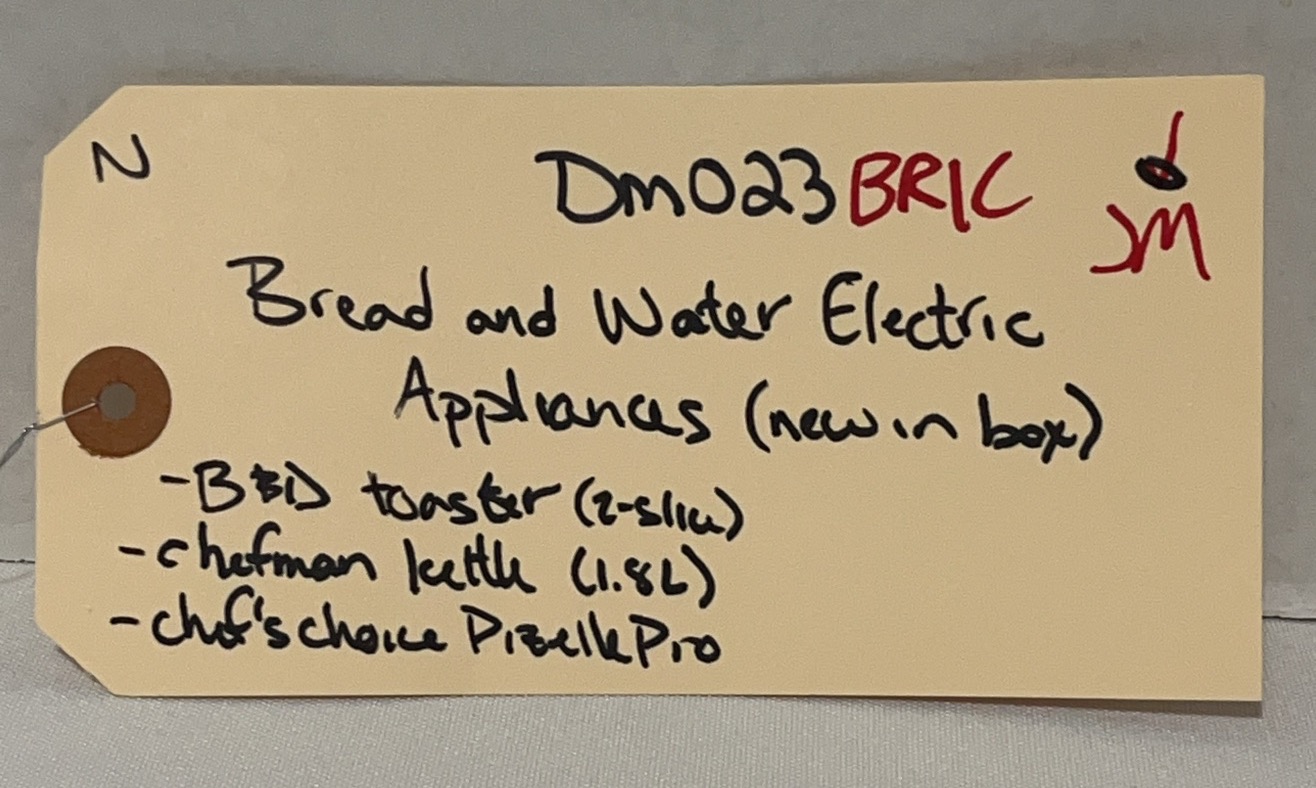 N
Dm023BRIC
JM
Bread and Water Electric
Appliances (new in box)
-B&D toaster (2-slice)
-chefman kettle (1.8L)
-chef's choice PizellePro